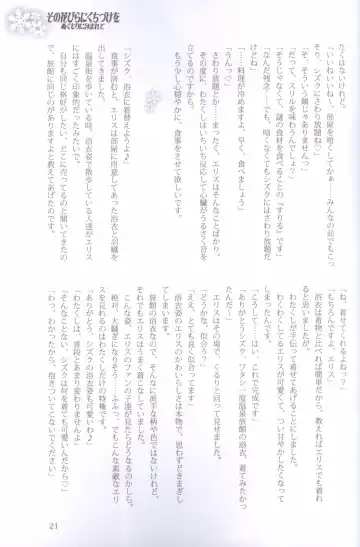 その花びらにくちづけを
ぬくもりにつつまれて
たくはないけれど。
「いいねいいね～、部屋を暗くしてかぁ……みんなの前でもこっ
そり、シズクにさわり放題ね♡」
「そ、そういう鍋じゃありませんっ」
「だって、スリルを味わうんでしょ？」
「そうじゃなくて、謎の食材を食べることの『すりる』です」
「なんだ残念……。でも、暗くしなくてもシズクにはさわり放題だ
けどね」
「……料理が冷めますよ、早く、食べましょう」
「うんっ♡」
さわり放題とか……まったく、エリスはそんなことばっか。
その度に、わたくしはいちいち反応して心臓がうるさく音を
立ててしまうのですから。
もう少し心穏やかに、食事をさせて欲しいです。
「シズク、浴衣に着替えよっ♪」
食事が済むと、エリスは部屋に用意してあった浴衣と羽織を
出してきました。
温泉街を歩いている時、浴衣姿で散歩している人達がエリス
にはすごく印象的だったみたいで。
自分も同じ格好がしたい、どこに売ってるのと聞いてきたの
で、旅館に同じのがありますよと教えてあげたのです。
「着せてくれるよね？」
「もちろんですよ、エリス」
浴衣は着物と比べれば簡単だから、教えればエリスでも着れ
ると思いましたけど。
わたくしが手伝って着せてあげることにしました。
わくわくしてるエリスが可愛くて、つい甘やかしたくなって
しまったんです。
「こうして……はい、これで完成です」
「ありがとうシズク、ワタシ一度温泉旅館の浴衣、着てみたかっ
たんだ～」
エリスはその場で、くるりと回って見せました。
「どうかな、似合う？」
「ええ、とても良く似合ってます」
浴衣姿のエリスのかわいらしさは本物で、思わずどきまぎし
てしまいます。
旅館の浴衣なので、そんなに派手な柄や色ではないけれど。
それでもエリスはうまく着こなしていました。
こんな姿、エリスのファンの子達が見たらどうなるのかしら。
絶対、大騒ぎになりそう……ふふっ、でもこんな素敵なエリ
スを見れるのはわたくしだけの特権です。
「ありがとう、シズクの浴衣姿も可愛いわ♪」
「わたくしは、普段とあまり変わりませんよ」
「そんなことない、シズクは何を着ても可愛いんだから♡」
「わっ、わかったから、抱きついてこないでください」
21